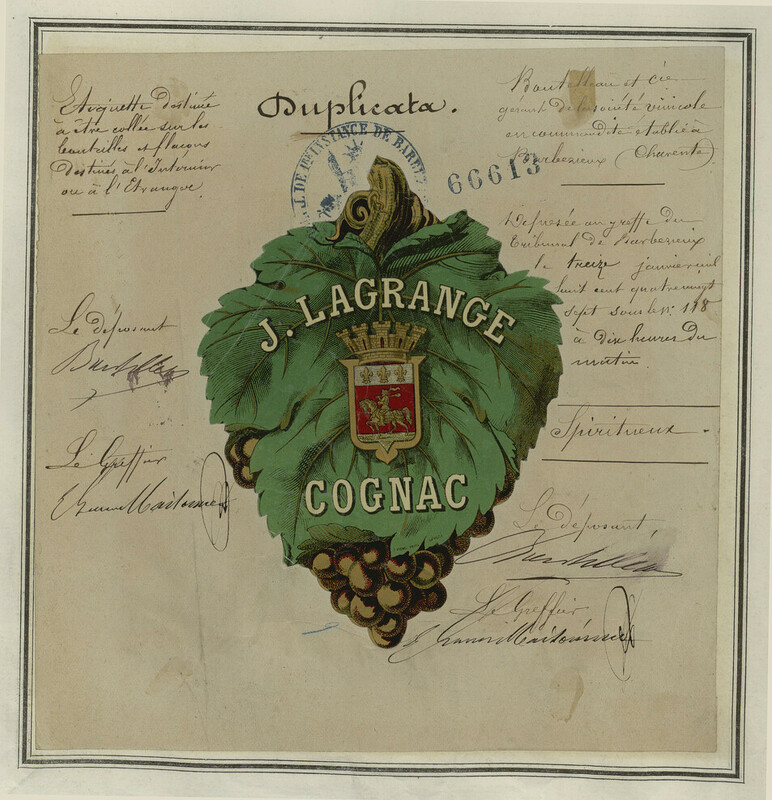 Duplicata.
Etiquette destinée
à être collée sur les
bouteilles et flacons
destinés à l'Interieur
ou à l'Etranger.
Boutelleau et Cie
gérant de la société vinicole
en commandite établie à
Barbezieux (Charente)
T. J. DE 1re INSTANCE DE BARBEZ
66613
Déposée au greffe du
Tribunal de Barbezieux
le treize janvier mil
huit cent quatre vingt
sept sous le n°. 118
à dix heures du
matin.
Spiritueux.
J. LAGRANGE
COGNAC
Le déposant
Boutelleau
Le Greffier
Le déposant,
Boutelleau
Le Greffier